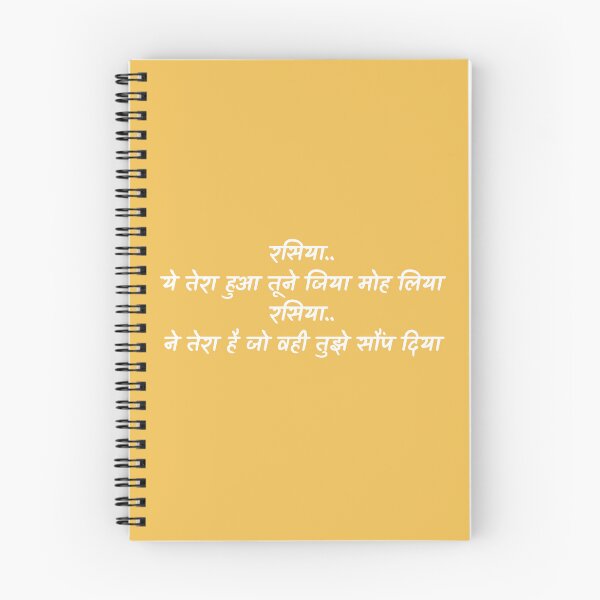 रसिया..
ये तेरा हुआ तूने जिया मोह लिया
रसिया..
ने तेरा है जो वही तुझे सौंप दिया